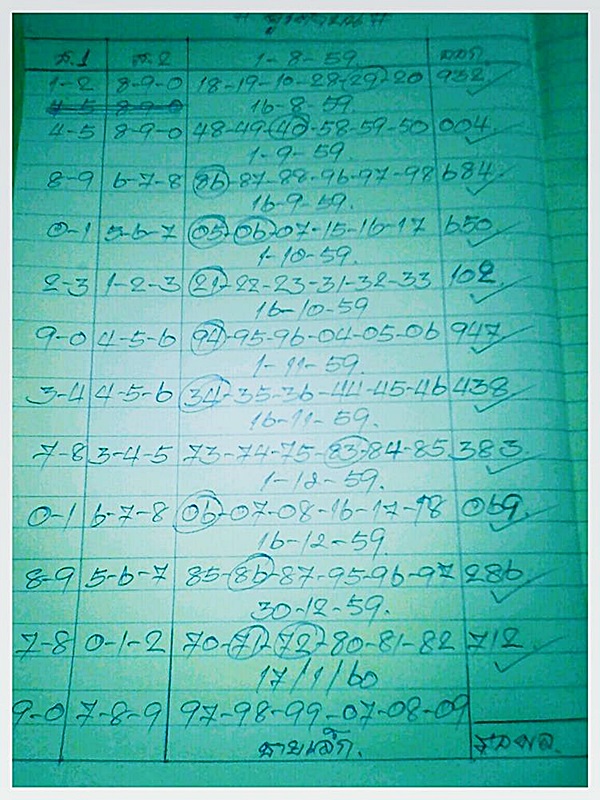 ส.1 ส.2 1-8-59. ออก.
1-2 8-9-0 18-19-10-28-29-20 932
4-5 8-9-0 16-8-59.
4-5 8-9-0 48-49-40-58-59-50 004
1-9-59.
8-9 6-7-8 86-87-88-96-97-98 684
16-9-59.
0-1 5-6-7 05-06-07-15-16-17 650
1-10-59.
2-3 1-2-3 21-22-23-31-32-33 102
16-10-59
9-0 4-5-6 94-95-96-04-05-06 947
1-11-59.
3-4 4-5-6 34-35-36-44-45-46 438
16-11-59.
7-8 3-4-5 73-74-75-83-84-85 383
1-12-59.
0-1 6-7-8 06-07-08-16-17-18 069
16-12-59.
8-9 5-6-7 85-86-87-95-96-97 286
30-12-59.
7-8 0-1-2 70-71-72-80-81-82 712
17/1/60
9-0 7-8-9 97-98-99-07-08-09
รอผล.